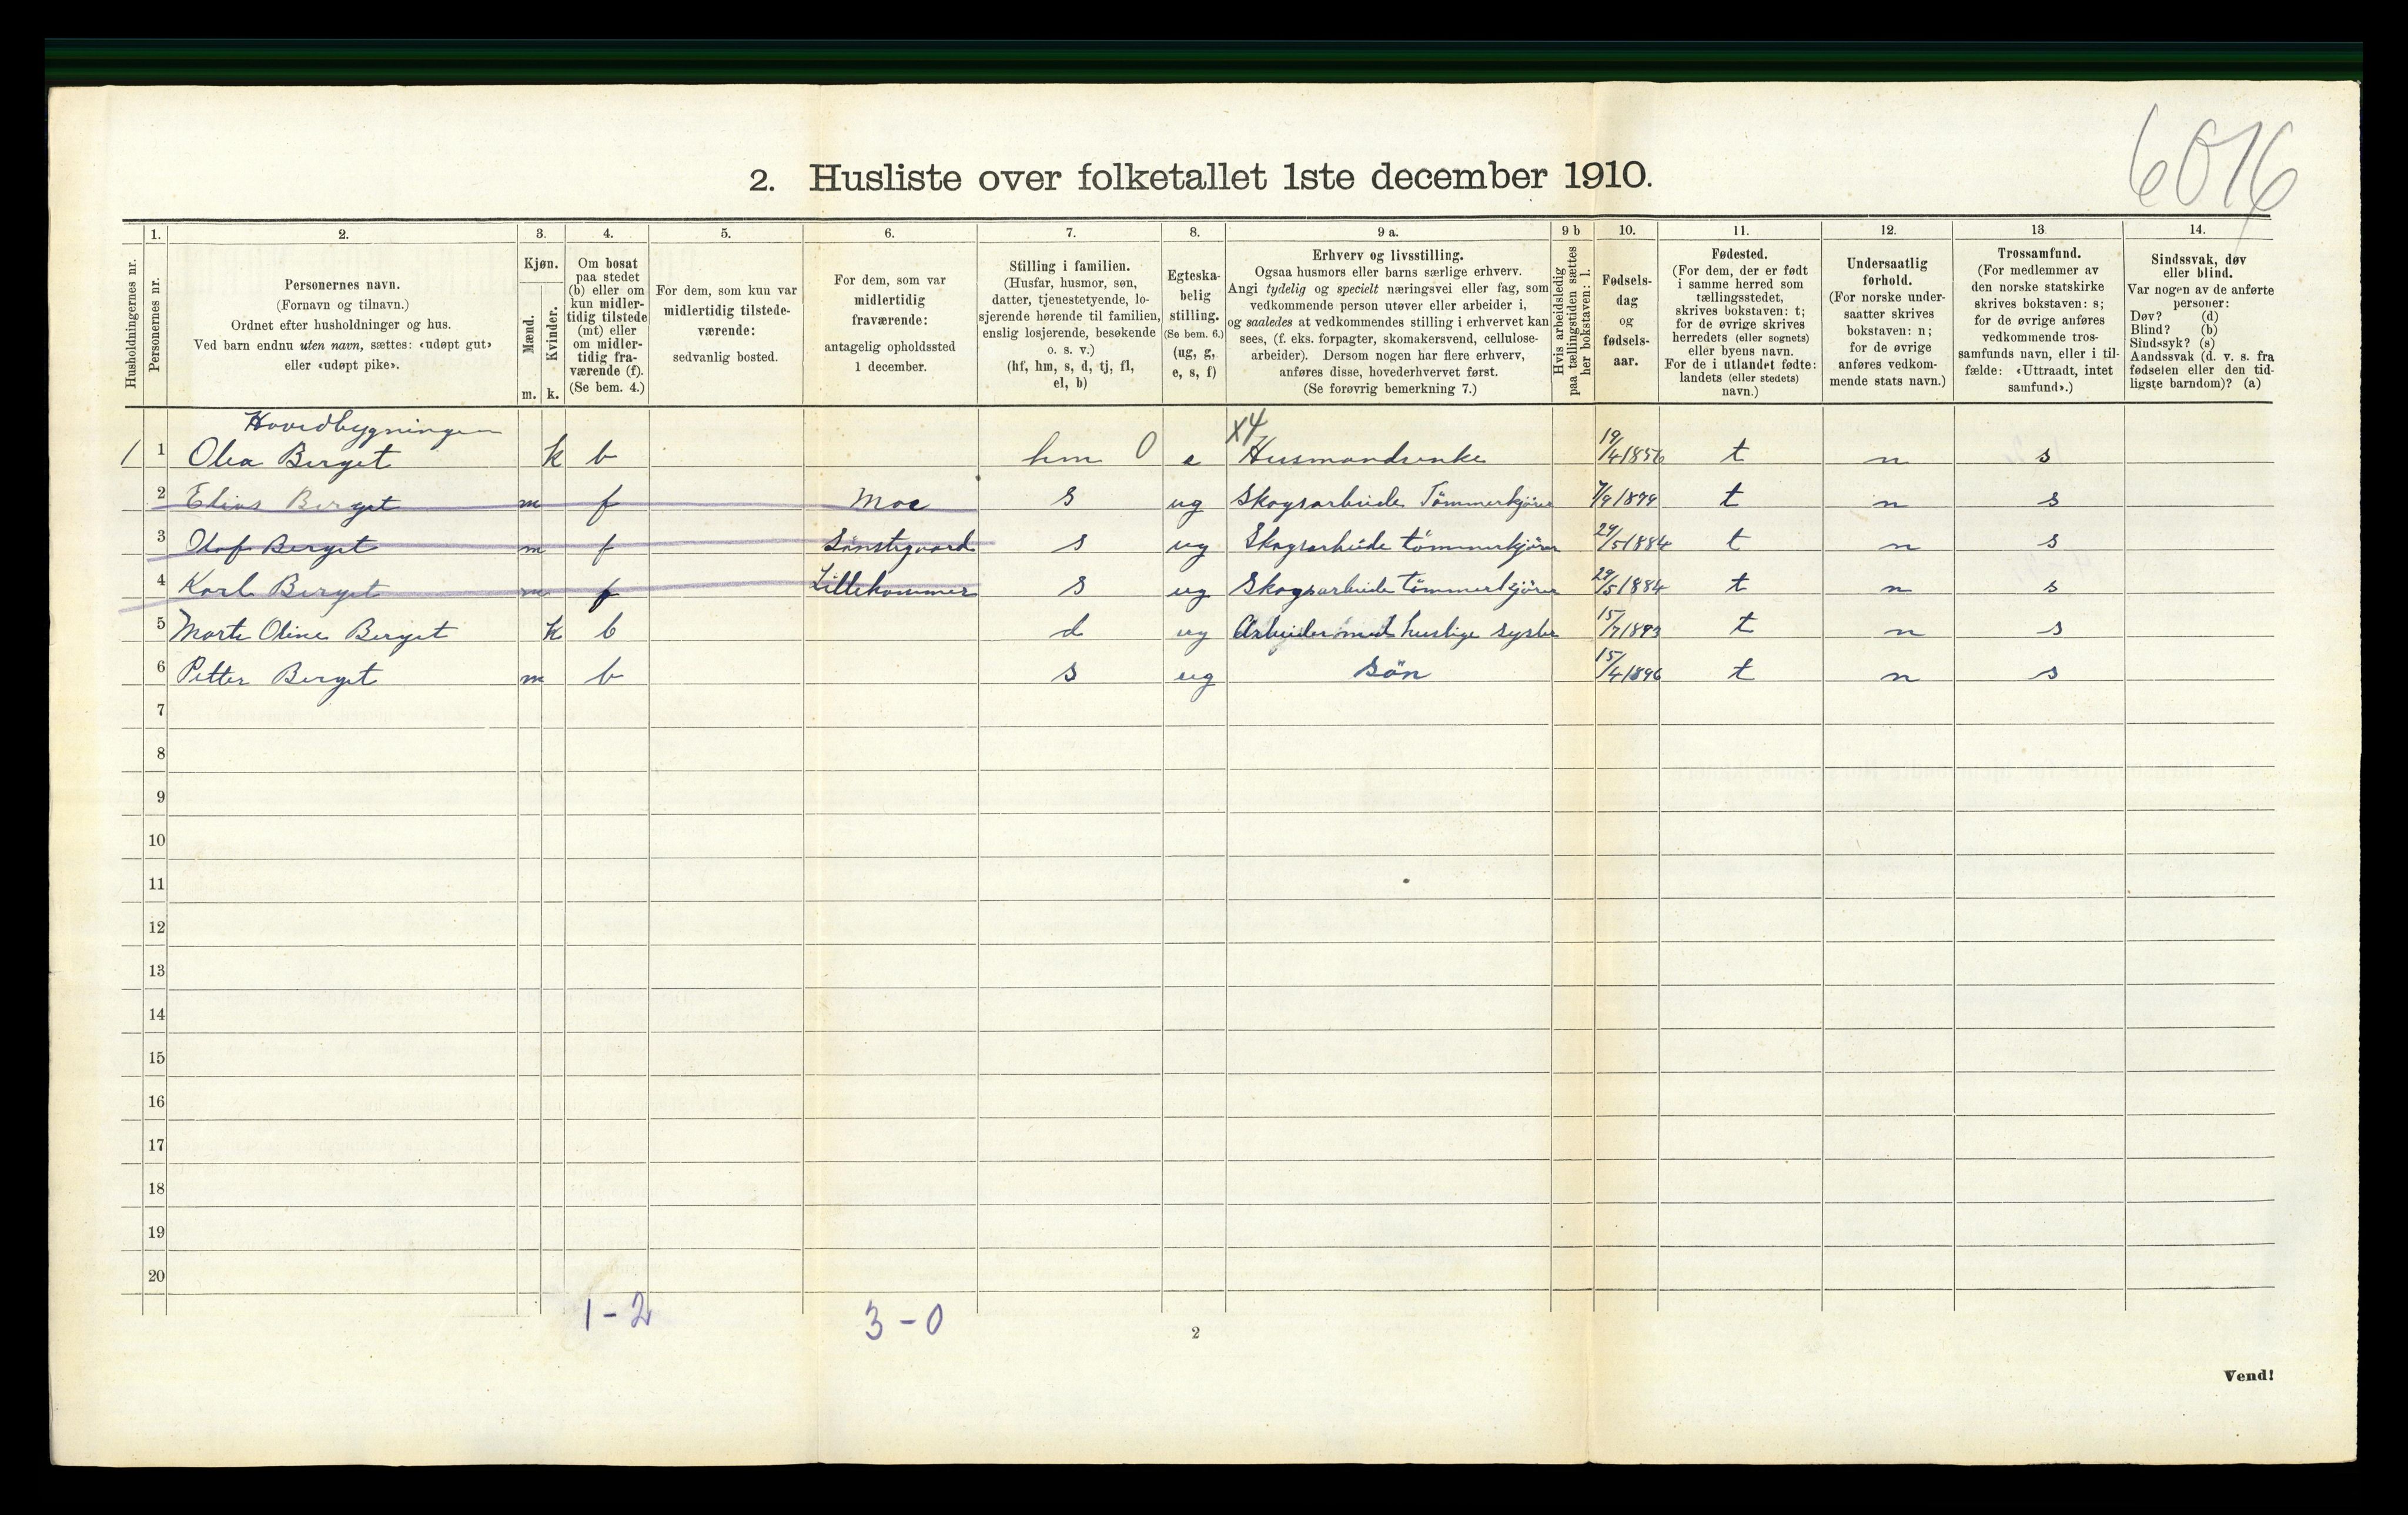 6016
2. Husliste over folketallet 1ste december 1910.
1. 2. 3. 4. 5. 6. 7. 8. 9 a. 9 b 10. 11. 12. 13 14.
Husholdningernes nr.
Personernes nr.
Personernes navn.
(Fornavn og tilnavn.)
Ordnet efter husholdninger og hus.
Ved barn endnu uten navn, sættes: «udøpt gut»
eller «udøpt pike».
Kjøn.
Mænd.
Kvinder.
m. k.
Om bosat
paa stedet
(b) eller om
kun midler-
tidig tilstede
(mt) eller
om midler-
tidig fra-
værende (f).
(Se bem. 4.)
For dem, som kun var
midlertidig tilstede-
værende:
sedvanlig bosted.
For dem, som var
midlertidig
fraværende:
antagelig opholdssted
1 december.
Stilling i familien.
(Husfar, husmor, søn,
datter, tjenestetyende, lo-
sjerende hørende til familien,
enslig losjerende, besøkende
o. s. v.)
(hf, hm, s, d, tj, fl,
el, b)
Egteska-
belig
stilling.
(Se bem. 6.)
(ug, g,
e, s, f)
Erhverv og livsstilling.
Ogsaa husmors eller barns særlige erhverv.
Angi tydelig og specielt næringsvei eller fag, som
vedkommende person utøver eller arbeider i,
og saaledes at vedkommendes stilling i erhvervet kan
sees, (f. eks. forpagter, skomakersvend, cellulose-
arbeider). Dersom nogen har flere erhverv,
anføres disse, hovederhvervet først.
(Se forøvrig bemerkning 7.)
Hvis arbeidsledig
paa tællingstiden sættes
her bokstaven: l.
Fødsels-
dag
og
fødsels-
aar.
Fødested.
(For dem, der er født
i samme herred som
tællingsstedet,
skrives bokstaven: t;
for de øvrige skrives
herredets (eller sognets)
eller byens navn.
For de i utlandet fødte:
landets (eller stedets)
navn.)
Undersaatlig
forhold.
(For norske under-
saatter skrives
bokstaven: n;
for de øvrige
anføres vedkom-
mende stats navn.)
Trossamfund.
(For medlemmer av
den norske statskirke
skrives bokstaven: s;
for de øvrige anføres
vedkommende tros-
samfunds navn, eller i til-
fælde: «Uttraadt, intet
samfund».)
Sindssvak, døv
eller blind.
Var nogen av de anførte
personer:
Døv? (d)
Blind? (b)
Sindssyk? (s)
Aandssvak (d. v. s. fra
fødselen eller den tid-
ligste barndom)? (a)
Hovedbygningen
1 1 Olea Berget k b hm 0 e X4 Husmandsenke 19/4 1856 t n s
2 Elias Berget m f Moe s ug Skogsarbeide Tømmerkjører 7/9 1879 t n s
3 Olaf Berget m f Sönstegaard s ug Skogsarbeide tömmerkjörer 29/5 1884 t n s
4 Karl Berget m f Lillehammer s ug Skogsarbeide tömmerkjörer 29/5 1884 t n s
5 Marte Oline Berget k b d ug Arbeider med huslige sysler 15/7 1893 t n s
6 Petter Berget m b s ug sön 15/4 1896 t n s
7
8
9
10
11
12
13
14
15
16
17
18
19
20
1-2 3-0
2
Vend!